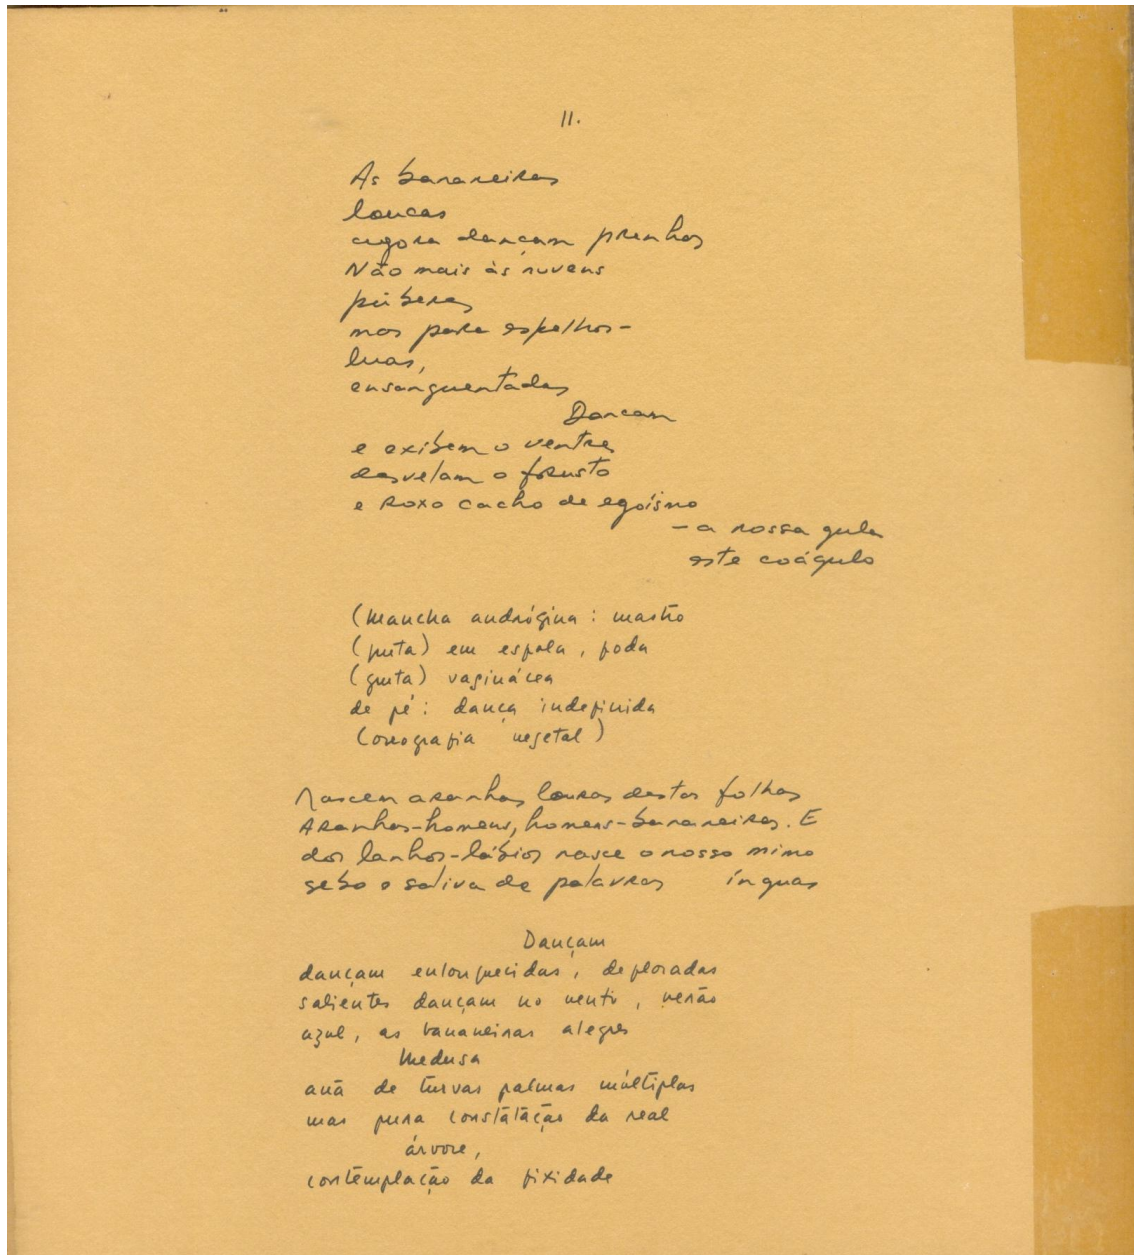 II.
As bananeiras
loucas
agora dançam prenhas
Não mais às nuvens
púberes
mas para espelhos-
luas,
ensanguentadas
Dançam
e exibem o ventre
desvelam o fausto
e roxo cacho de egoísmo
- a nossa gula
este coágulo
(mancha andrógina: mastro
(puta) em espela, poda
(gruta) vaginácea
de pé: dança indefinida
coreografia vegetal)
Nascem aranhas louras destas folhas
Aranhas-homens, homens-bananeiras. E
dos lanhos-lábios nasce o nosso mimo
sebo e saliva de palavras ínguas
Dançam
dançam enlouquecidas, defloradas
salientes dançam no vento, verão
azul, as bananeiras alegres
Medusa
anã de turvas palmas múltiplas
mas pura constatação da real
árvore,
contemplação da fixidade